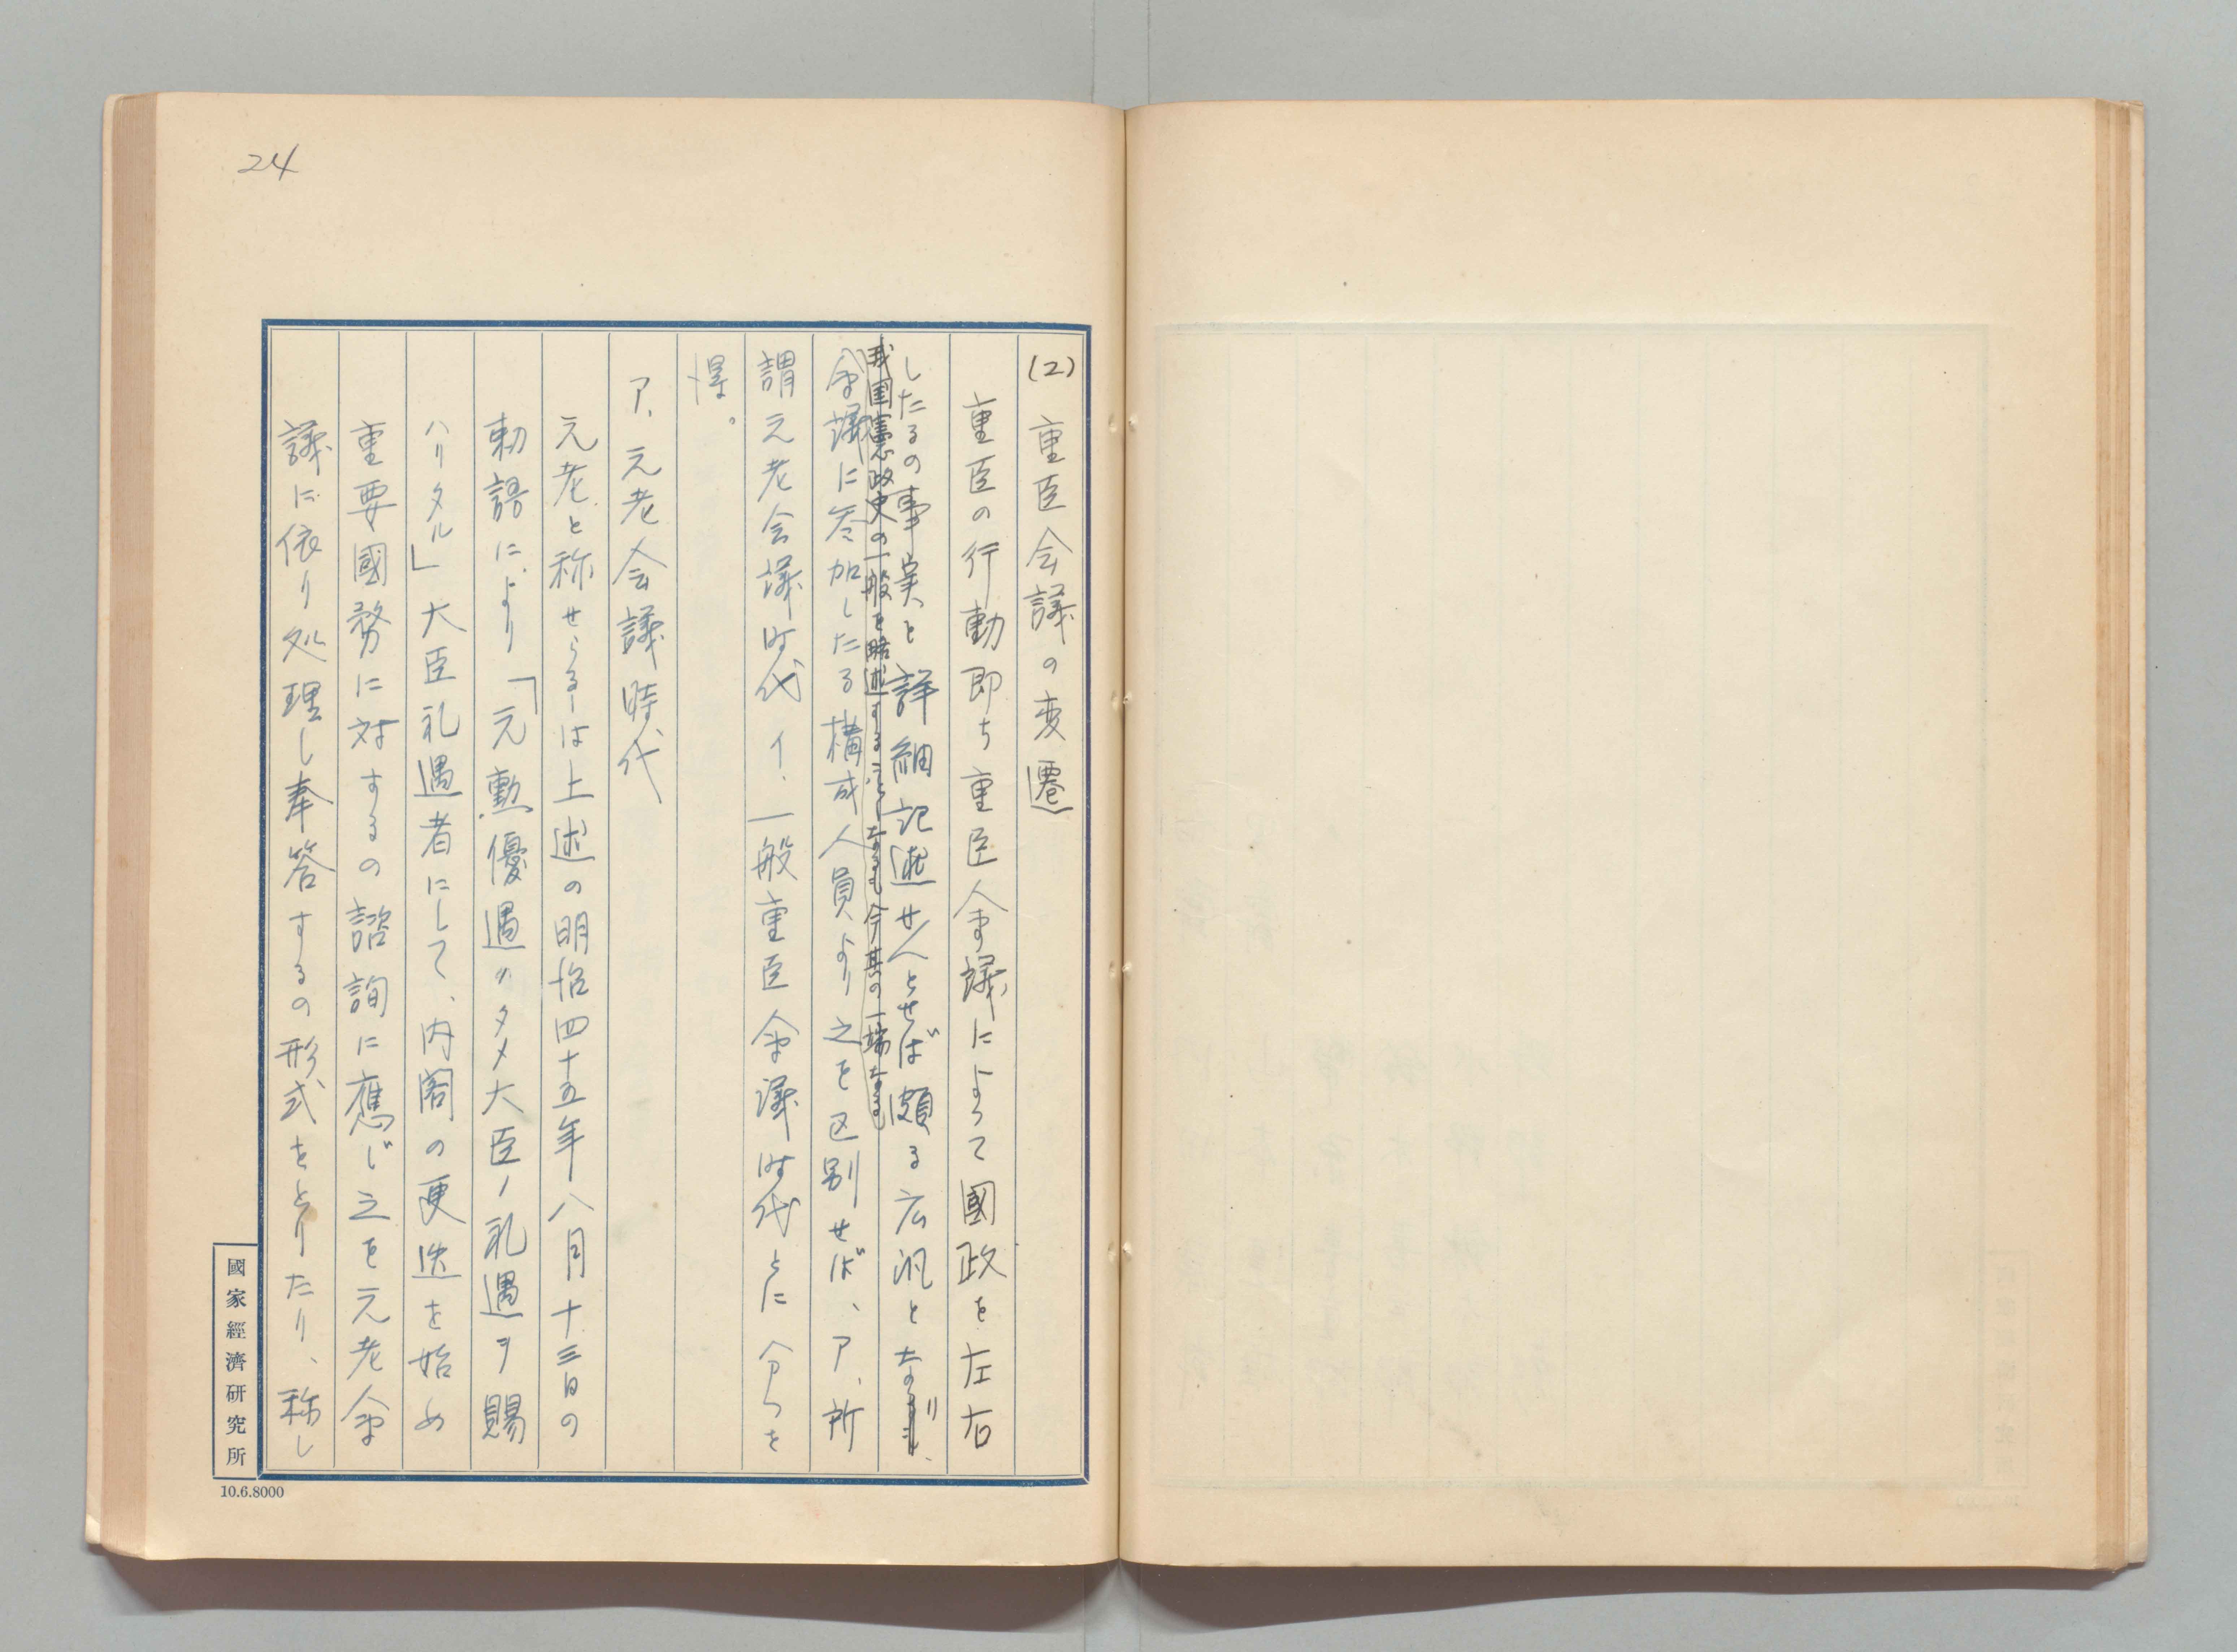 24
(2) 重臣会議の変遷
重臣の行動即ち重臣会議によつて國政を左右
したるの事実を詳細記述せんとせば頗る広汎となり、
我国憲政史の一般を略述することゝなるも今其の一端なる
会議に参加したる構成人員より之を区別せば、ア、所
謂元老会議時代 イ、一般重臣会議時代とに分つを
得。
ア、元老会議時代
元老と称せらるゝは上述の明治四十五年八月十三日の
勅語により「元勲優遇ノタメ大臣ノ礼遇ヲ賜
ハリタル」大臣礼遇者にして、内閣の更迭を始め
重要國務に対するの諮詢に應じ之を元老会
議に依り処理し奉答するの形式をとりたり、称し
國家經濟研究所
10.6.8000